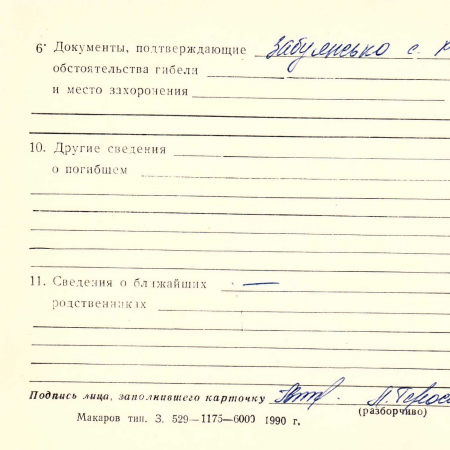 6 Документы, подтверждающие
обстоятельства гибели
и место захоронения
10. Другие сведения
о погибшем
11. Сведения о ближайших —
родственниках
Подпись лица, заполнившего карточку
(разборчиво)
Макаров тип. З. 529—1175—6000 1990 г.